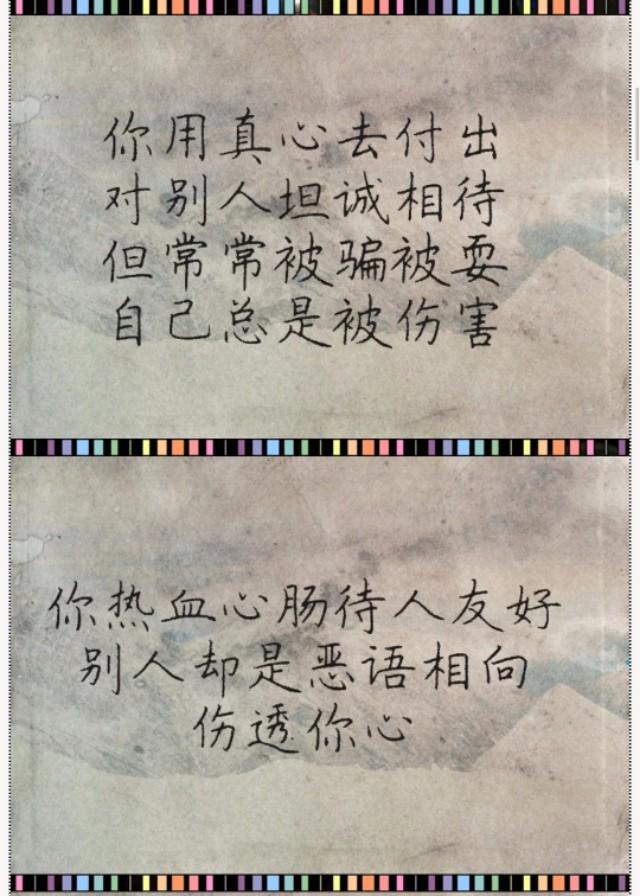 你用真心去付出
对别人坦诚相待
但常常被骗被耍
自己总是被伤害
你热血心肠待人友好
别人却是恶语相向
伤透你心